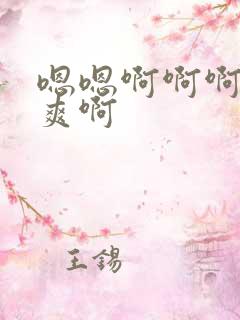 嗯嗯啊啊啊
爽啊
王錫